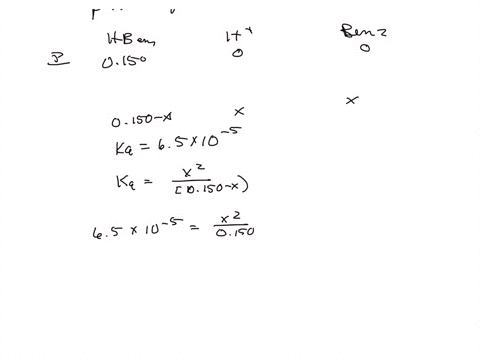 HBenz H⁺ Benz
I 0.150 0 0
0.150-x x x
Ka = 6.5×10⁻⁵
Ka = x² / [0.150-x)
6.5 × 10⁻⁵ = x² / 0.150